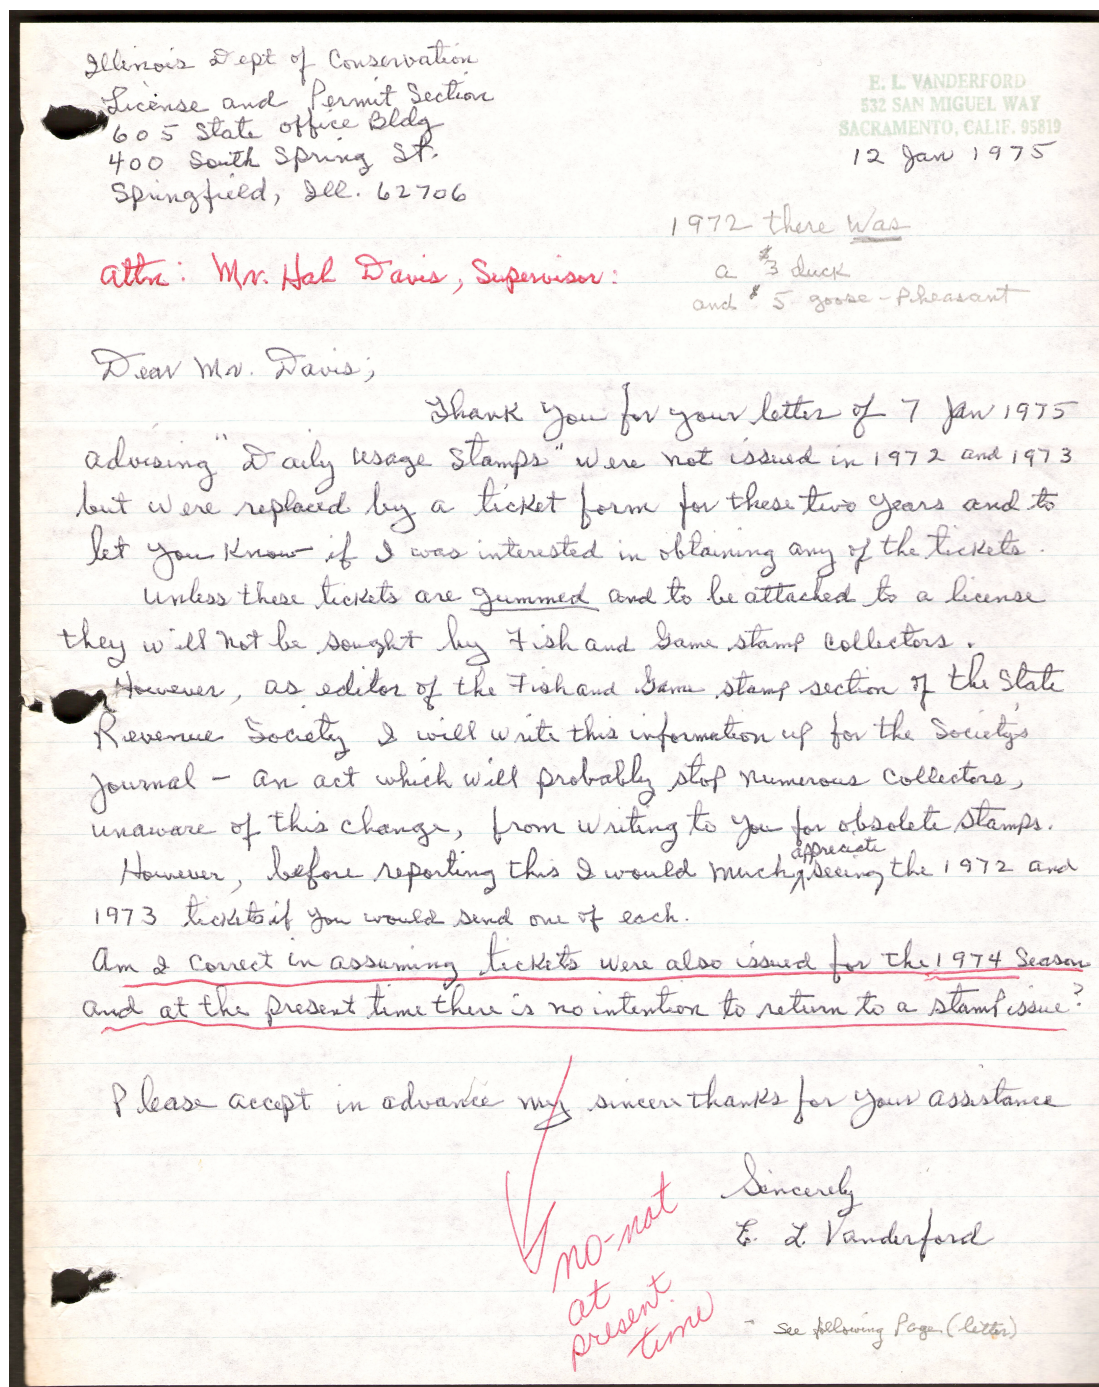 Illinois Dept of Conservation
License and Permit Section
605 State Office Bldg
400 South Spring St.
Springfield, Ill. 62706
E. L. VANDERFORD
532 SAN MIGUEL WAY
SACRAMENTO, CALIF. 95819
12 Jan 1975
1972 there was
a $3 duck
and $5 goose-Pheasant
Attn: Mr. Hal Davis, Supervisor:
Dear Mr. Davis;
Thank you for your letter of 7 Jan 1975
advising "Daily Usage Stamps" were not issued in 1972 and 1973
but were replaced by a ticket form for these two years and to
let you know if I was interested in obtaining any of the tickets.
Unless these tickets are gummed and to be attached to a license
they will not be sought by Fish and Game stamp collectors.
However, as editor of the Fish and Game stamp section of the State
Revenue Society I will write this information up for the Society's
Journal - an act which will probably stop numerous collectors,
unaware of this change, from writing to you for obsolete stamps.
However, before reporting this I would much appreciate seeing the 1972 and
1973 tickets if you would send one of each.
Am I correct in assuming tickets were also issued for the 1974 Season
and at the present time there is no intention to return to a stamp issue?
Please accept in advance my sincere thanks for your assistance
Sincerely
E. L. Vanderford
no-not
at
present
time
- See following Page (letter)